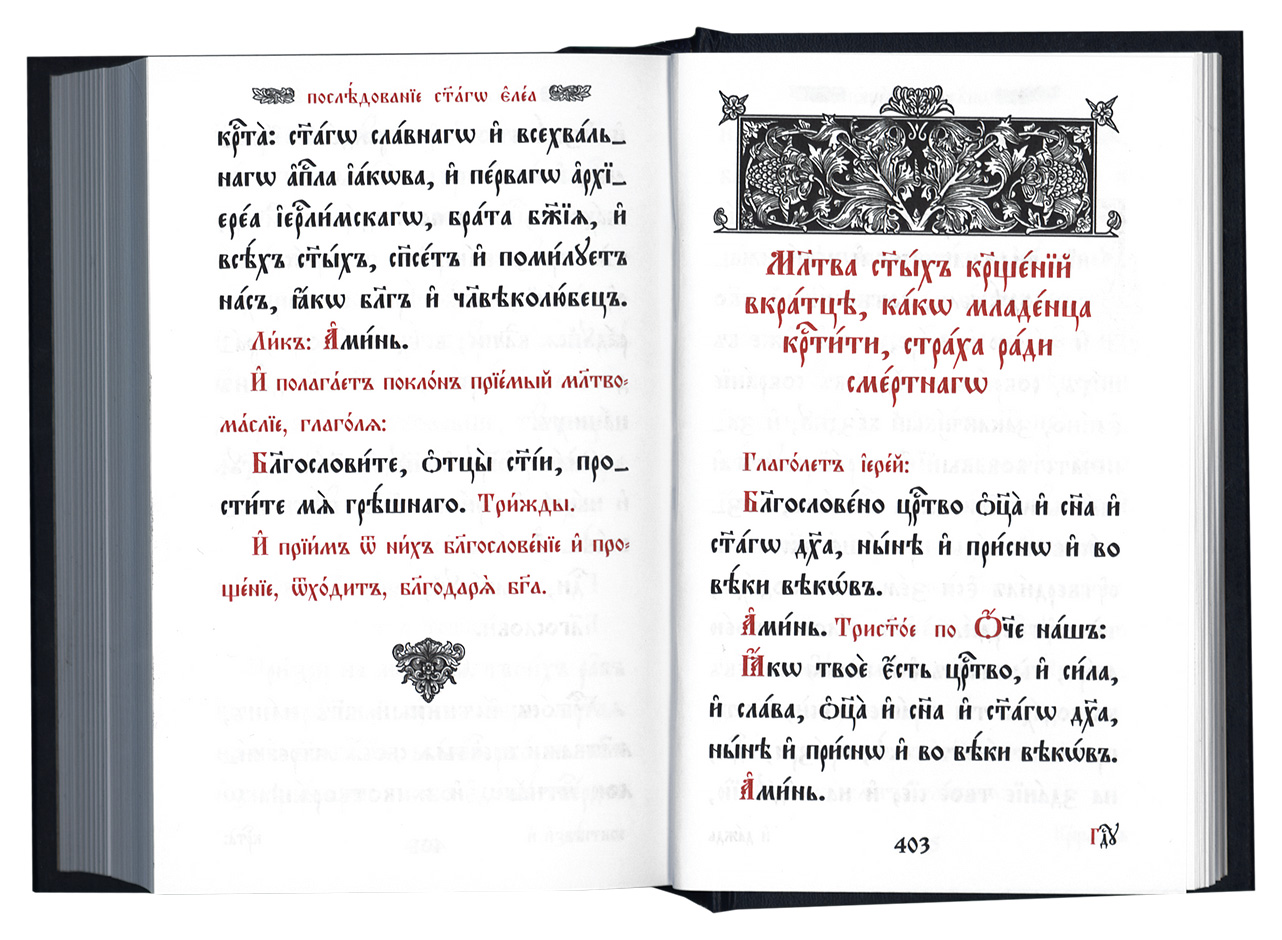 послѣ́дованїе ст҃а́гѡ є҆ле́а
крⷭ҇та̀: ст҃а́гѡ сла́внагѡ и҆ всехва́ль_
нагѡ а҆пⷭ҇ла і҆а́кѡва, и҆ пе́рвагѡ а҆рхї_
ере́а і҆ерⷭ҇ли́мскагѡ, бра́та бж҃їѧ, и҆
всѣ́хъ ст҃ы́хъ, сп҃се́тъ и҆ поми́лꙋетъ
на́съ, ꙗ҆́кѡ бл҃гъ и҆ чл҃вѣколю́бецъ.
Ли́къ: А҆ми́нь.
И҆ полага́етъ покло́нъ прїе́мый мл҃тво-
ма́слїе, глаго́лѧ:
Бл҃гослови́те, ѻ҆тцы̀ ст҃і́и, про_
сти́те мѧ̀ грѣ́шнаго. Три́жды.
И҆ прїи́мъ ѿ ни́хъ бл҃гослове́нїе и҆ про-
ще́нїе, ѿхо́дитъ, бл҃годарѧ̀ бг҃а.
Мл҃тва ст҃ы́хъ кр҃ще́нїй
вкра́тцѣ, ка́кѡ младе́нца
крⷭ҇ти́ти, стра́ха ра́ди
сме́ртнагѡ
Глаго́летъ і҆ере́й:
Бл҃гослове́но црⷭ҇тво ѻ҆ц҃а̀ и҆ сн҃а и҆
ст҃а́гѡ дх҃а, ны́нѣ и҆ при́снѡ и҆ во
вѣ́ки вѣкѡ́въ.
А҆ми́нь. Тристо́е по Ѻ҆́ч҃е на́шъ:
Ꙗ҆́кѡ твоѐ є҆́сть црⷭ҇тво, и҆ си́ла,
и҆ сла́ва, ѻ҆ц҃а̀ и҆ сн҃а и҆ ст҃а́гѡ дх҃а,
ны́нѣ и҆ при́снѡ и҆ во вѣ́ки вѣкѡ́въ.
А҆ми́нь.
403
Гдⷭ҇ꙋ